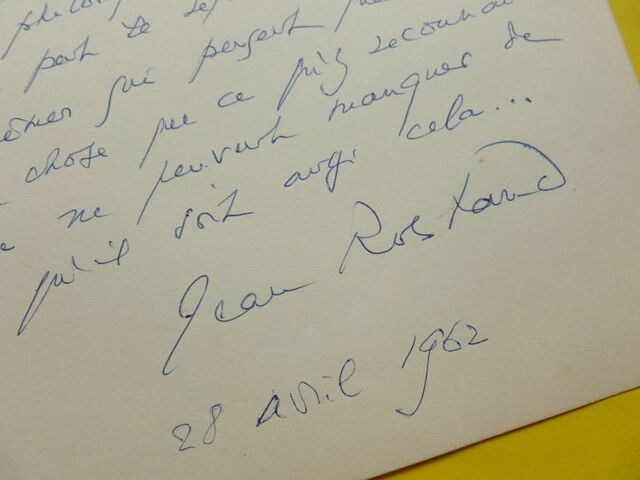 part te
qui pensent
chose que ce qu'ils
ne peuvent manquer de
qu'il soit aussi cela...
Jean Rostand
28 avril 1962